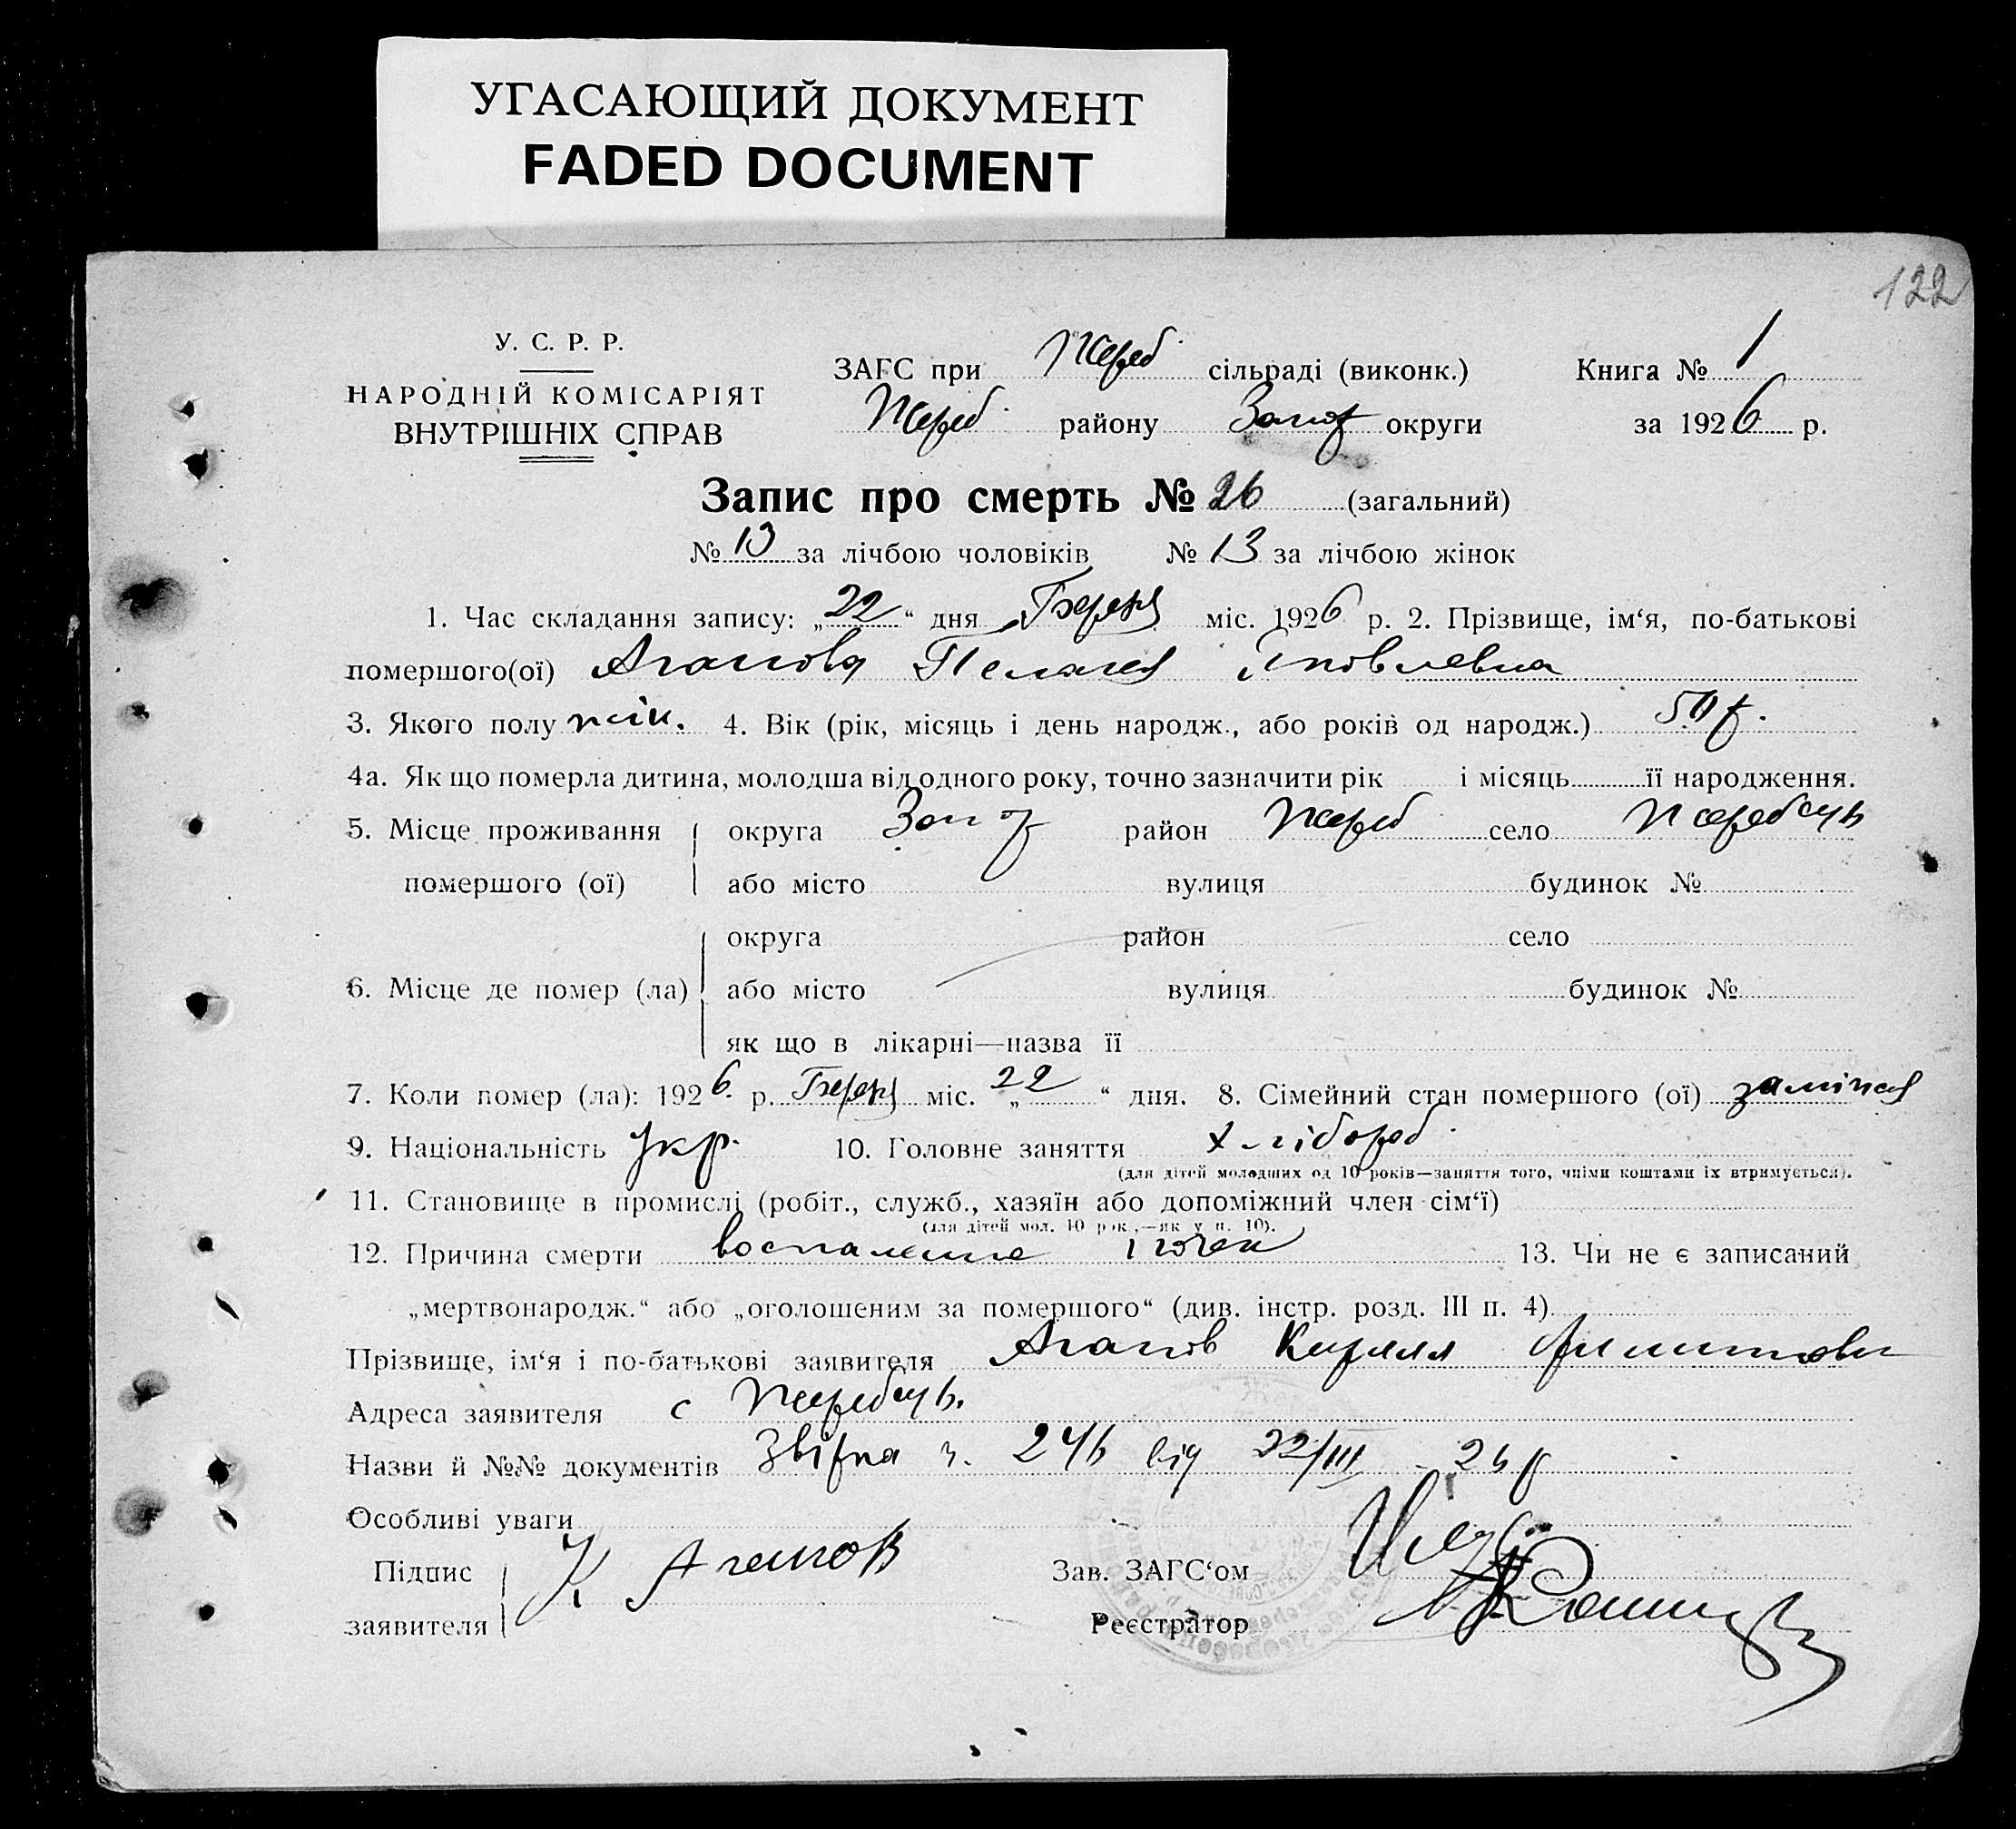 УГАСАЮЩИЙ ДОКУМЕНТ
FADED DOCUMENT
122
У. С. Р. Р.
НАРОДНІЙ КОМІСАРІЯТ
ВНУТРІШНІХ СПРАВ
ЗАГС при Жереб. сільраді (виконк.) Книга № 1
Жереб. району Запор округи за 1926 р.
Запис про смерть № 26 (загальний)
№ 13 за лічбою чоловіків № 13 за лічбою жінок
1. Час складання запису: „22“ дня Березня міс. 1926 р. 2. Прізвище, ім‘я, по-батькові
помершого(ої) Агапова Пелагея Яковлевна
3. Якого полу жін. 4. Вік (рік, місяць і день народж., або років од народж.) 50 р.
4а. Як що померла дитина, молодша від одного року, точно зазначити рік і місяць її народження.
5. Місце проживання округа Запор район Жереб село Жеребець
помершого (ої) або місто вулиця будинок №
округа район село
6. Місце де помер (ла) або місто вулиця будинок №
як що в лікарні—назва її
7. Коли помер (ла): 1926. р. Березня міс. „22“ дня. 8. Сімейний стан помершого (ої) заміжня
9. Національність Укр. 10. Головне заняття хлібороб.
(для дітей молодших од 10 років—заняття того, чиїми коштами їх втримується).
11. Становище в промислі (робіт., служб., хазяїн або допоміжний член сім‘ї)
(для дітей мол. 10 рок.,—як у п. 10).
12. Причина смерти воспаление почек 13. Чи не є записаний
„мертвонародж.“ або „оголошеним за помершого“ (див. інстр. розд. III п. 4)
Прізвище, ім‘я і по-батькові заявителя Агапов Кирилл
Адреса заявителя с Жеребець.
Назви й №№ документів від 22/III 26 р
Особливі уваги
Підпис К Агапов Зав. ЗАГС‘ом
заявителя Реєстратор